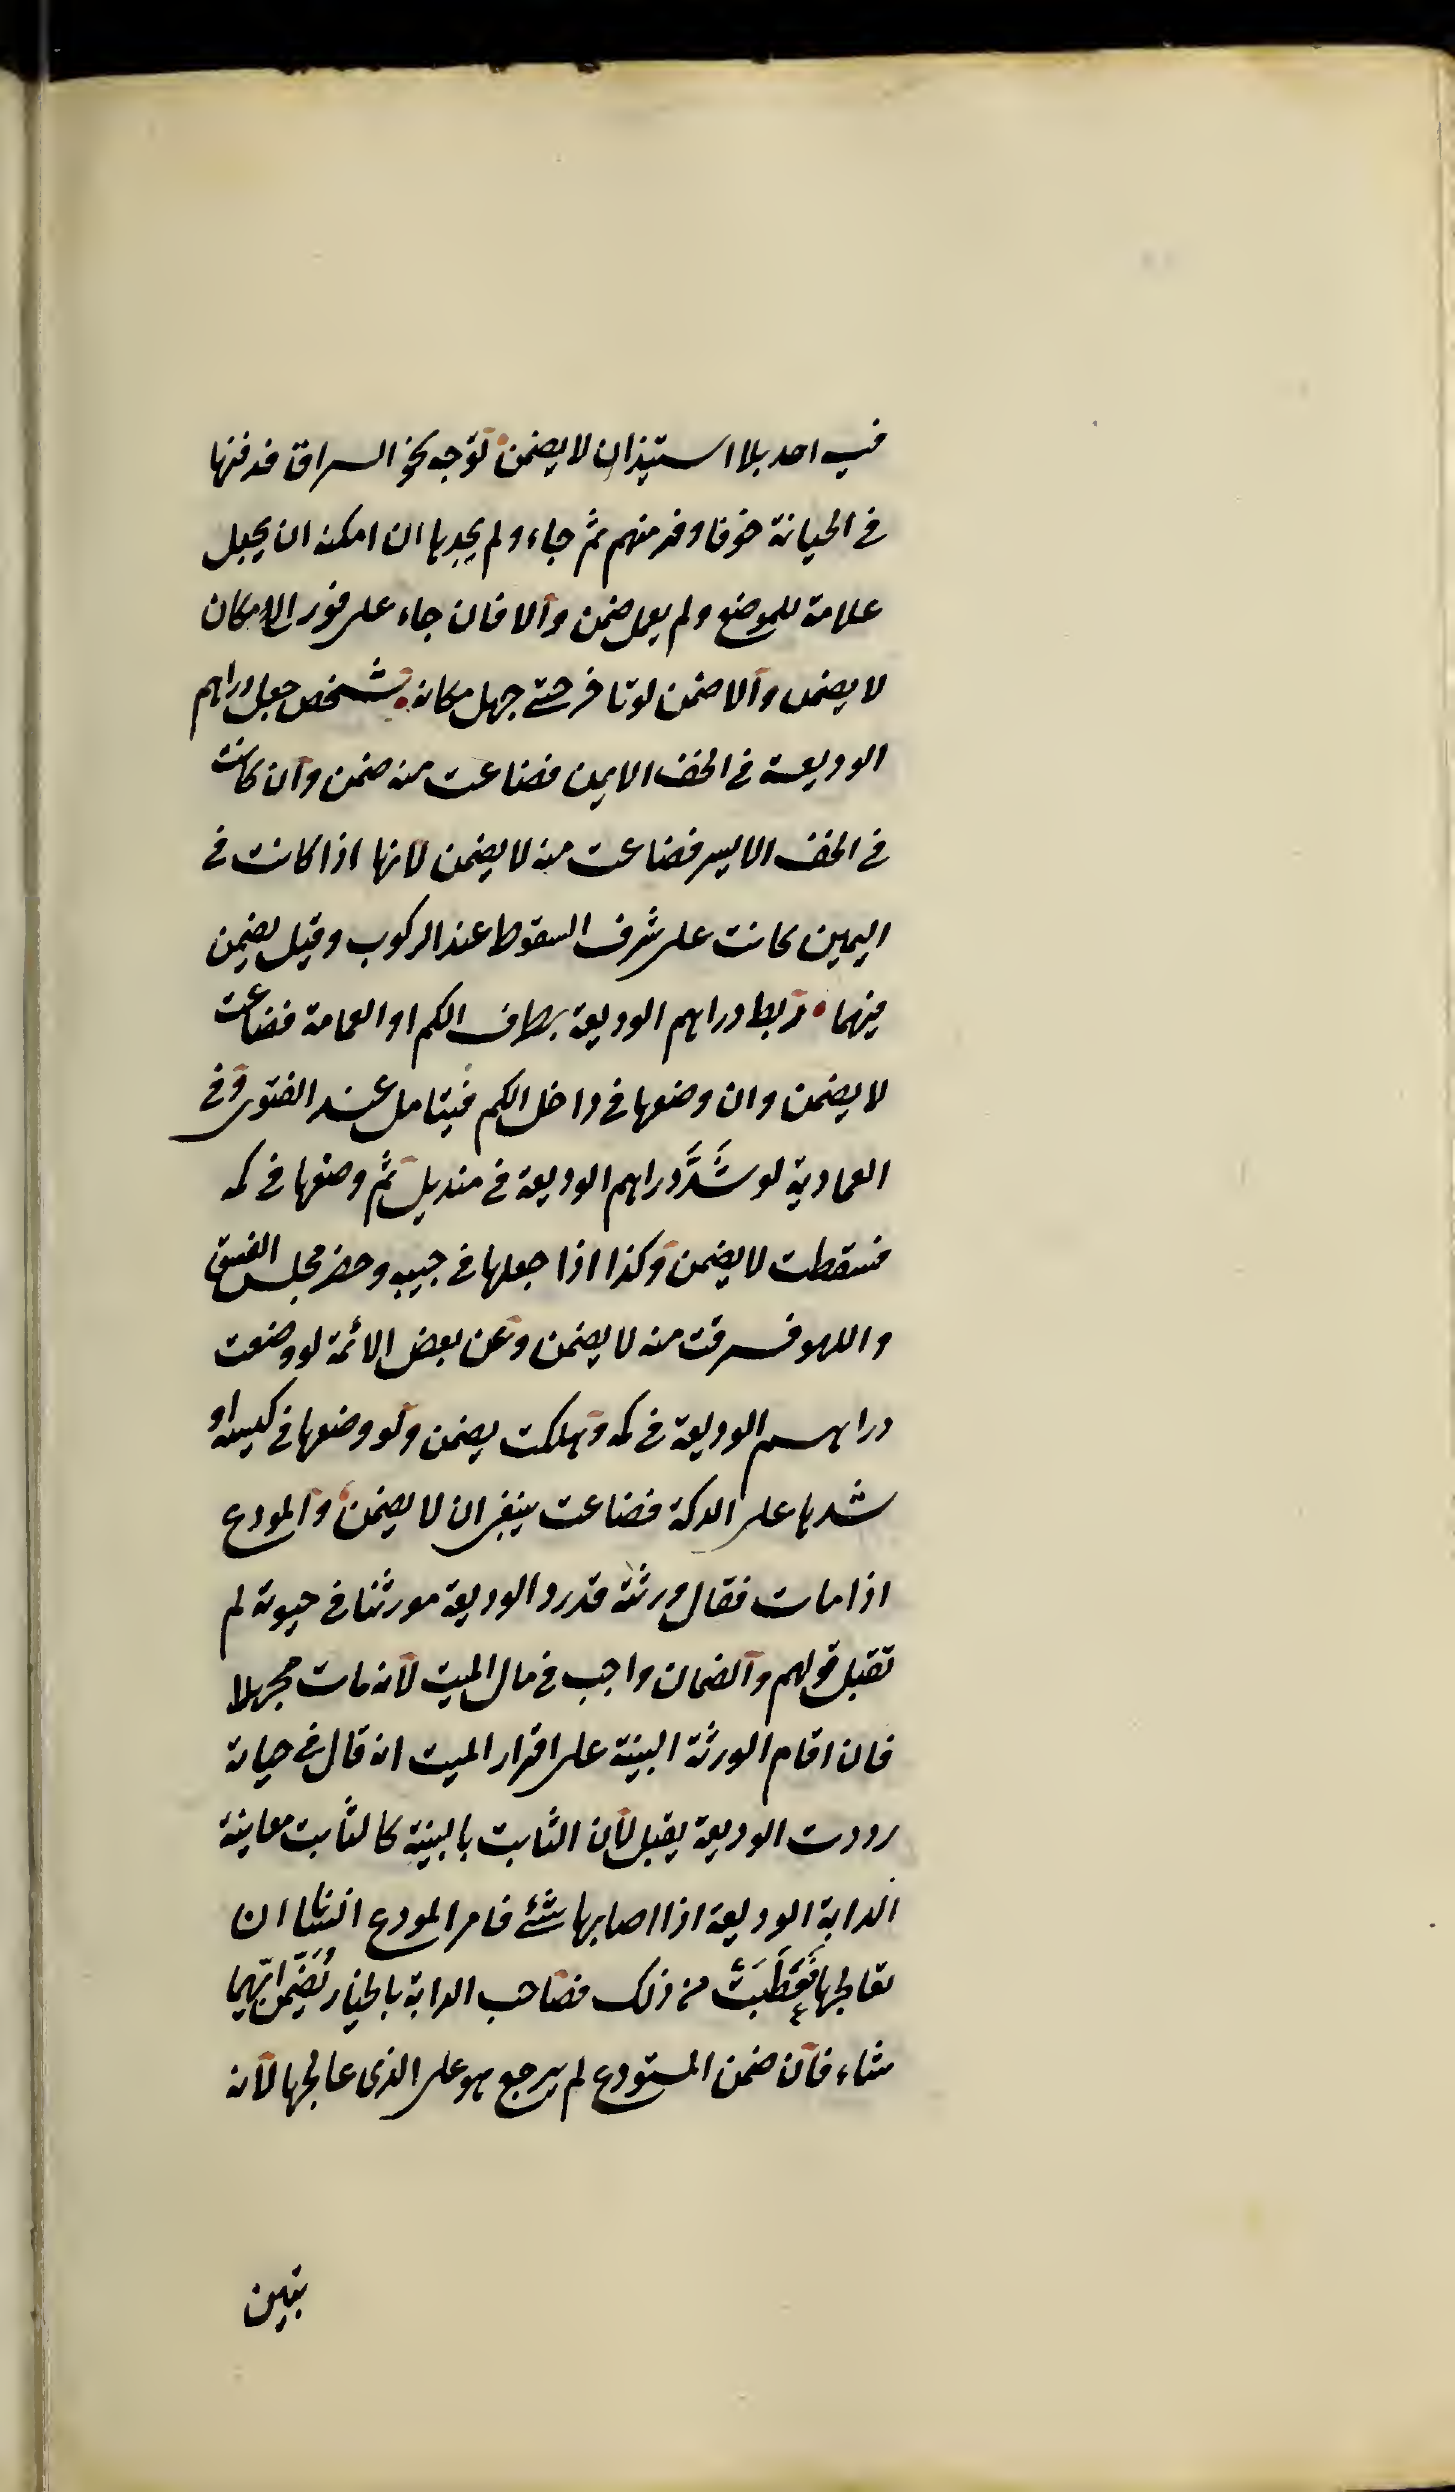 فيه احد بلا استيذان لا يضمن توجه نحو السراق فدفنها
في الجبانة خوفا وفر منهم ثم جاء ولم يجدها ان امكنه ان يجعل
علامة للموضع ولم يعمل ضمن والا فان جاء على فور الامكان
لا يضمن والا ضمن لو تاخر حتى جهل مكانه شخص جعل دراهم
الوديعة في الخف الايمن فضاعت منه ضمن وان كانت
في الخف الايسر فضاعت منه لا يضمن لانها اذا كانت في
اليمين كانت على شرف السقوط عند الركوب وقيل يضمن
فيهما ربط دراهم الوديعة بطرف الكم او العمامة فضاعت
لا يضمن وان وضعها في داخل الكم فيتامل عند الفتوى وفي
العمادية لو شَدَّ دراهم الوديعة في منديل ثم وضعها في كمه
فسقطت لا يضمن وكذا اذا جعلها في جيبه وحضر مجلس الفسق
واللهو فسرقت منه لا يضمن وعن بعض الائمة لو وضعت
دراهم الوديعة في كمه وهلكت يضمن ولو وضعها في كيسه او
شدها على الدكة فضاعت ينبغي ان لا يضمن والمودع
اذا مات فقال ورثته قد رد الوديعة مورثنا في حيوته لم
تقبل قولهم والضمان واجب في مال الميت لانه مات مجهلا
فان اقام الورثة البينة على اقرار الميت انه قال في حياته
رددت الوديعة يقبل لان الثابت بالبينة كالثابت معاينة
الدابة الوديعة اذا اصابها شئ فامر المودع انسانا ان
يعالجها فَعَطَبَتْ من ذلك فصاحب الدابة بالخيار يُضَمِّن ايّهما
شاء فان ضمن المستودع لم يرجع هو على الذى عالجها لانه
تبين